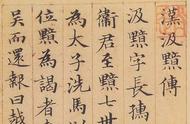 漢汲黯傳
汲黯字長孺
衛君至黯七世
為太子洗馬以
位黯為謁者
吳而還報曰